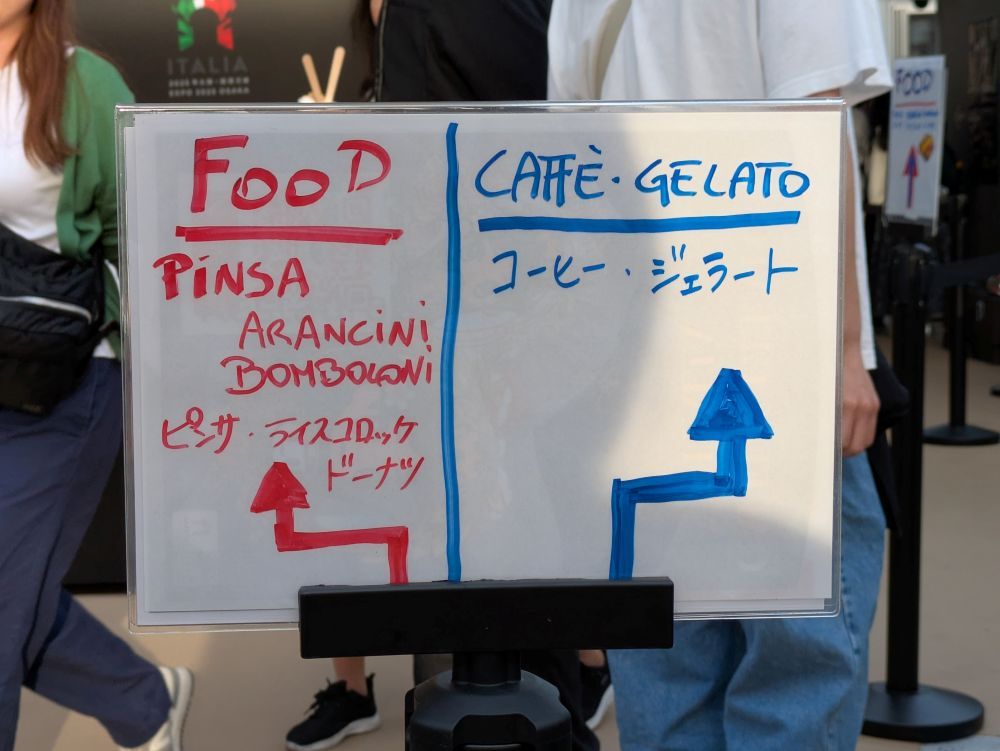 ITALIA
EXPO 2025 OSAKA
FOOD
PINSA
ARANCINI
BOMBOLONI
ピンサ・ライスコロッケ
ドーナツ
CAFFÈ・GELATO
コーヒー・ジェラート
FOOD